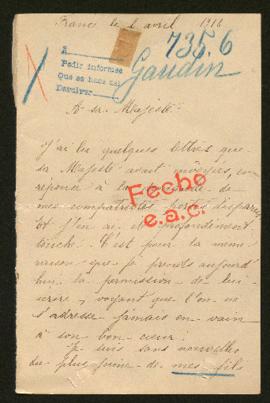 France le 6 avril 1916
735.6
Gaudin
A
Pedir informes
Que se hace del
A sa Majesté
J'ai lu quelques lettres que
sa Majesté avait envoyées en
réponse à la de
mes compatriotes portés disparus
et j'en ai été profondément
touché. C'est pour la même
raison que je prends aujourd'
hui la permission de lui
écrire, voyant que l'on ne
s'adresse jamais en vain
à son bon cœur.
Je suis sans nouvelles
du plus jeune de mes fils
Fecho
e.a.c.